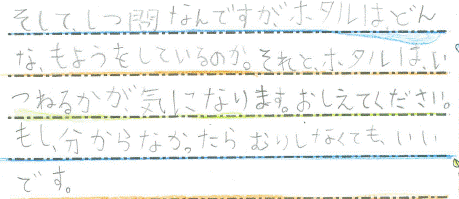 そして、しつ問なんですが、ホタルは、どん
な、もようをしているのか。それと、ホタルは、い
つねるかが、気になります。おしえてください。
もし、分からなかったら むりしなくても、いい
です。